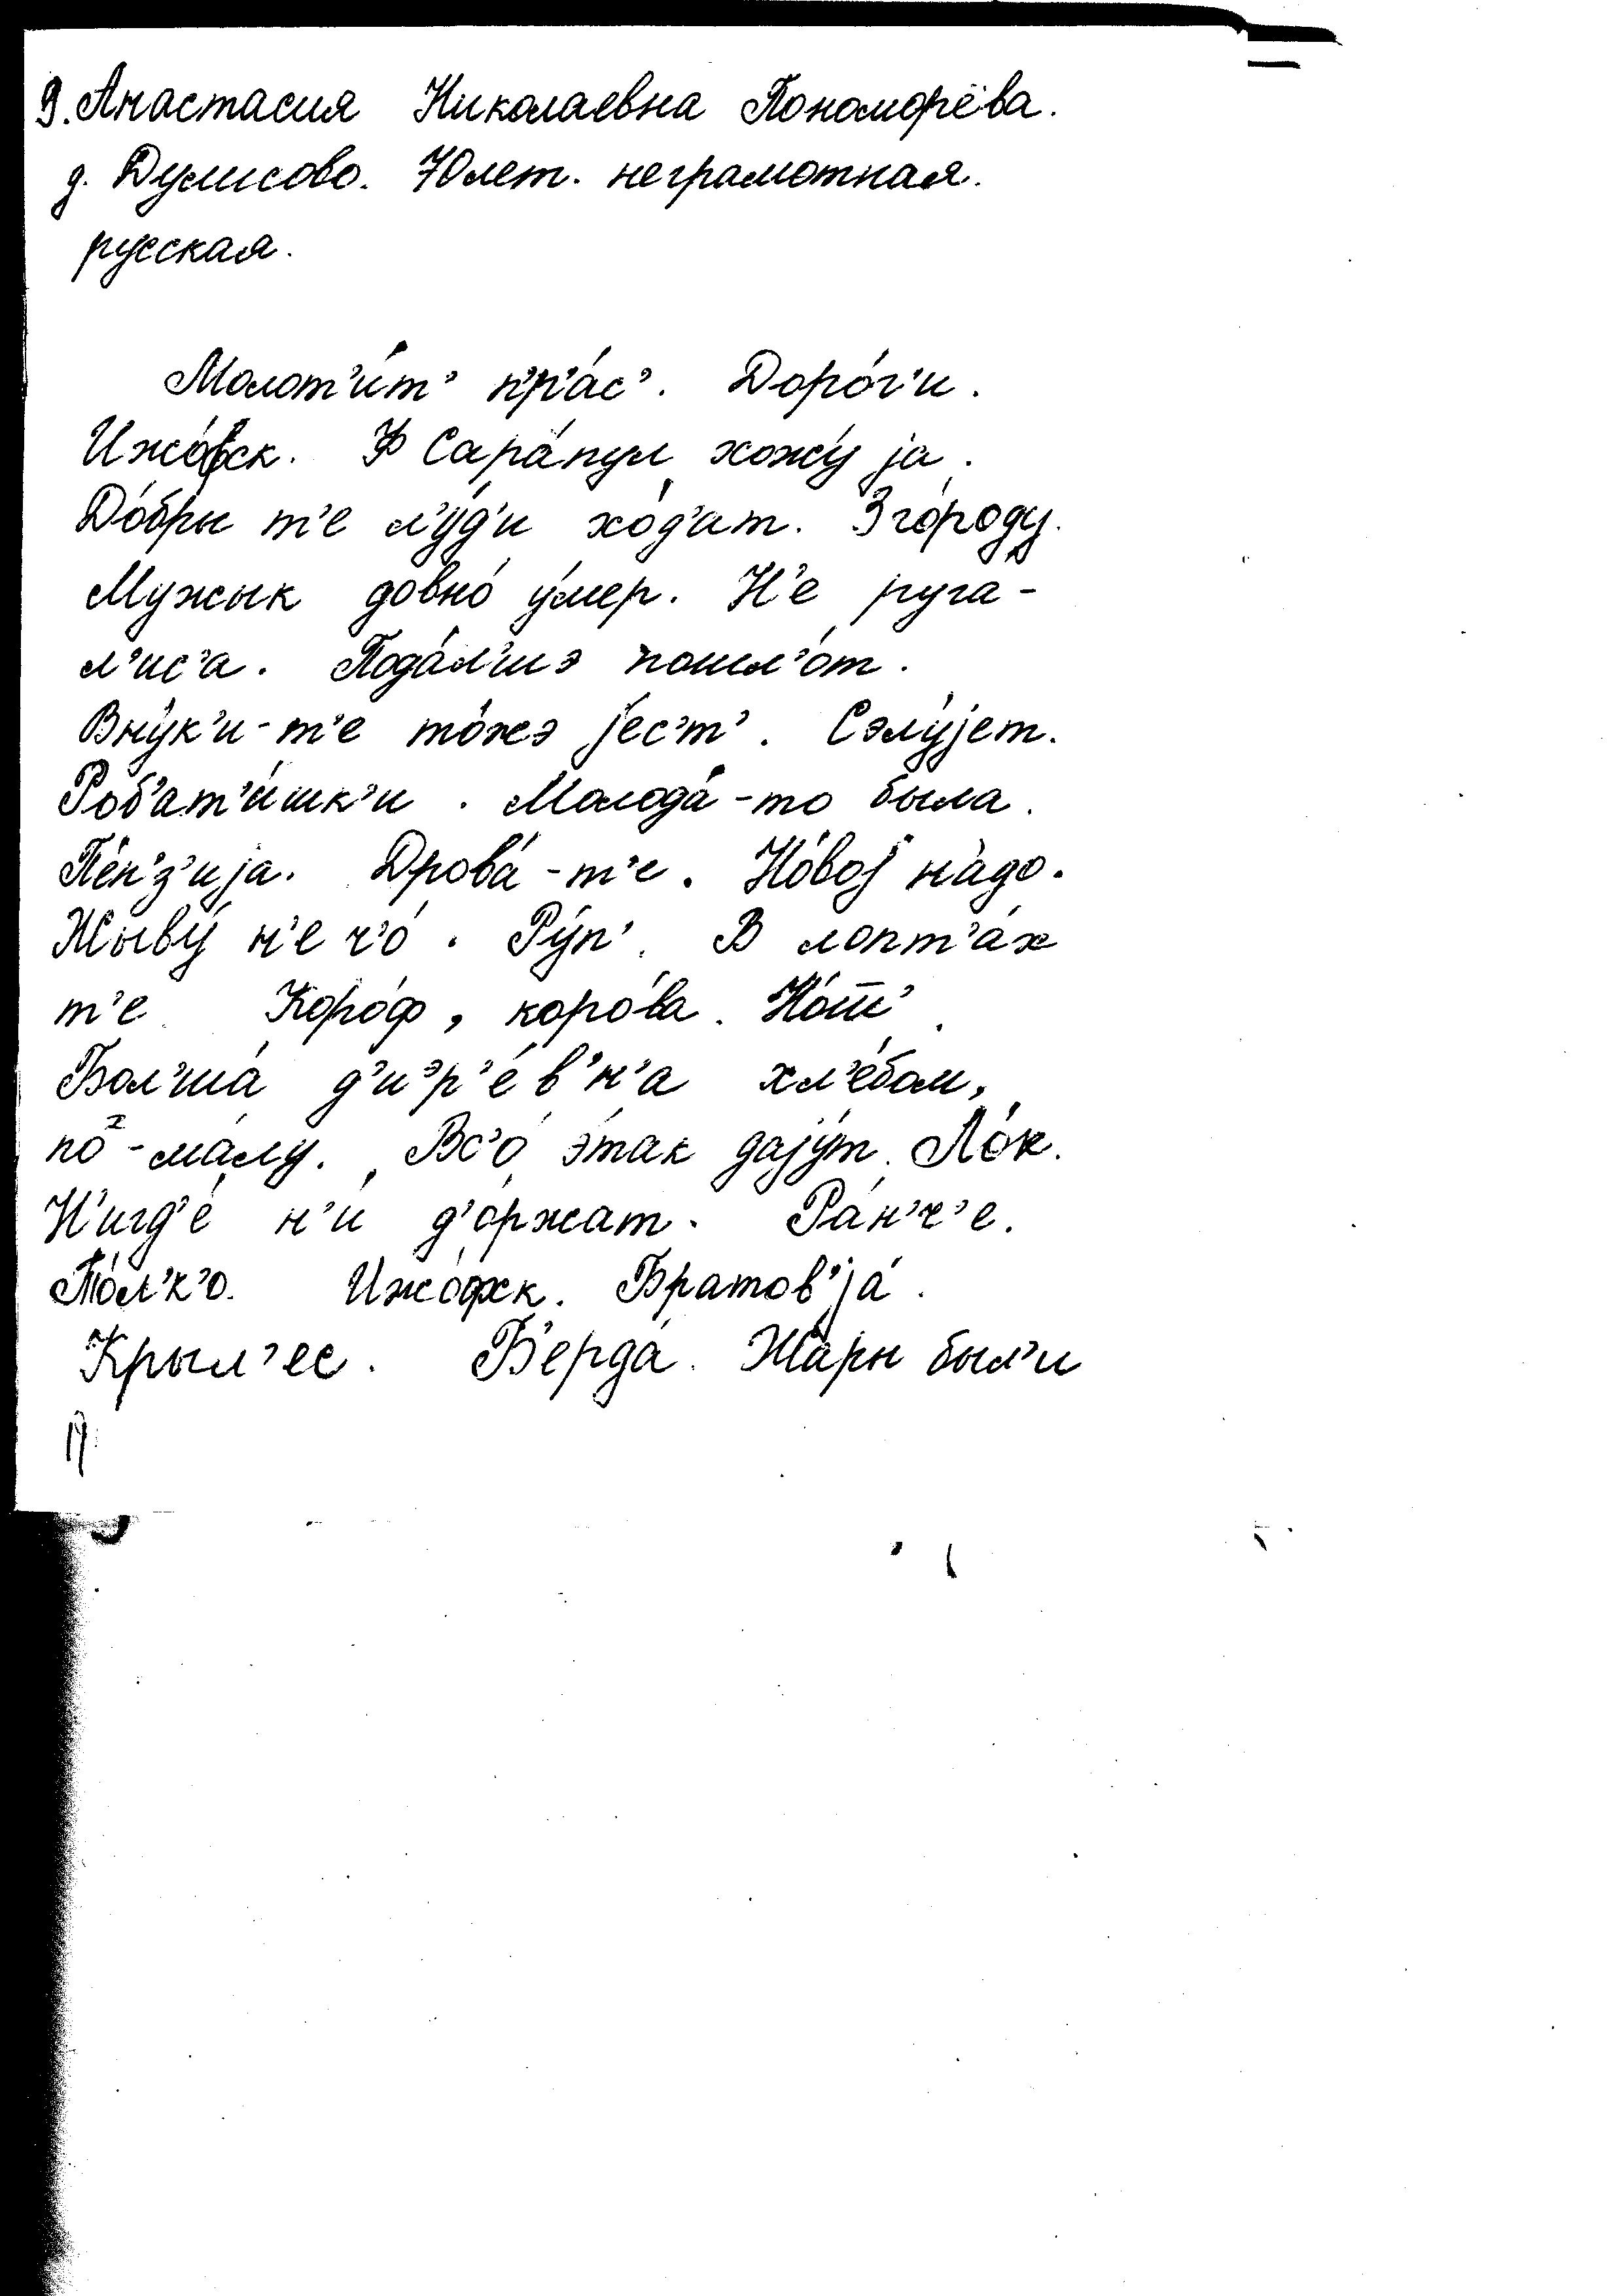 9. Анастасия Николаевна Пономорёва.
д. Думисово. 70 лет. неграмотная.
русская.
Молот'и́т' п'р'а́с'. Доро́г'и.
Ижо́вск. Ф Сара́пул хожу́ jа.
До́бры т'е л'у́д'и хо́д'ат. Зго́роду.
Мужык довно́ у́мер. Н'е руга́-
л'ис'а. Пода́л'шэ пошл'о́т.
Вну́к'и-т'е то́жэ jес'т'. Сэлу́jет.
Роб'ат'и́шк'и. Молода́-то была.
Пе́н'з'иjа. Дрова́-т'е. Но́воj на́до.
Жыву́ н'е ч'о́. Ру́п'. В лопт'а́х
т'е. Коро́ф, коро́ва.
Бол'ша́ д'иэр'е́в'н'а хл'е́бом,
по-малу. Вс'о́ э́так даjу́т. Ло́к.
Н'игд'е́ н'и д'о́ржат. Ра́н'ч'е.
То́л'к'о. Ижо́фск. Братов'jа́.
Крыл'ес. Б'ерда́. Жары был'и